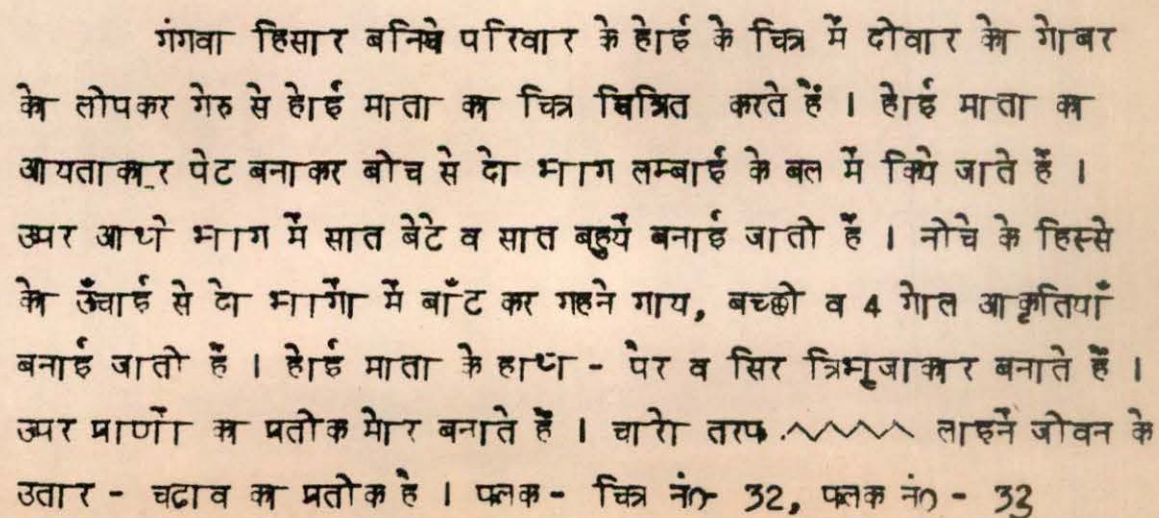 गंगवा हिसार बनिये परिवार के होई के चित्र में दोवार को गोबर
को लोपकर गेरु से होई माता का चित्र चित्रित करते हैं । होई माता का
आयताकार पेट बनाकर बोच से दो भाग लम्बाई के बल में किये जाते हैं ।
उपर आधे भाग में सात बेटे व सात बहुयें बनाई जातो हैं । नोचे के हिस्से
को ऊँचाई से दो भागों में बाँट कर गहने गाय, बच्छो व 4 गोल आकृतियाँ
बनाई जातो हैं । होई माता के हाथ - पेर व सिर त्रिभूजाकार बनाते हैं ।
उपर प्राणों का प्रतोक मोर बनाते हैं । चारो तरफ लाइनें जोवन के
उतार - चढाव का प्रतोक है । फलक - चित्र नं० 32, फलक नं० - 33